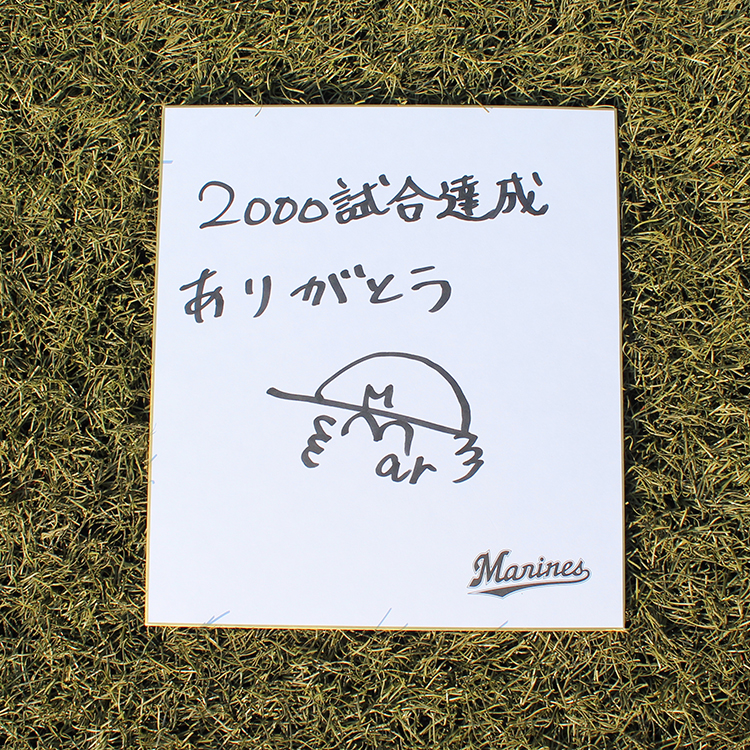 2000試合達成
ありがとう
M
mar
Marines